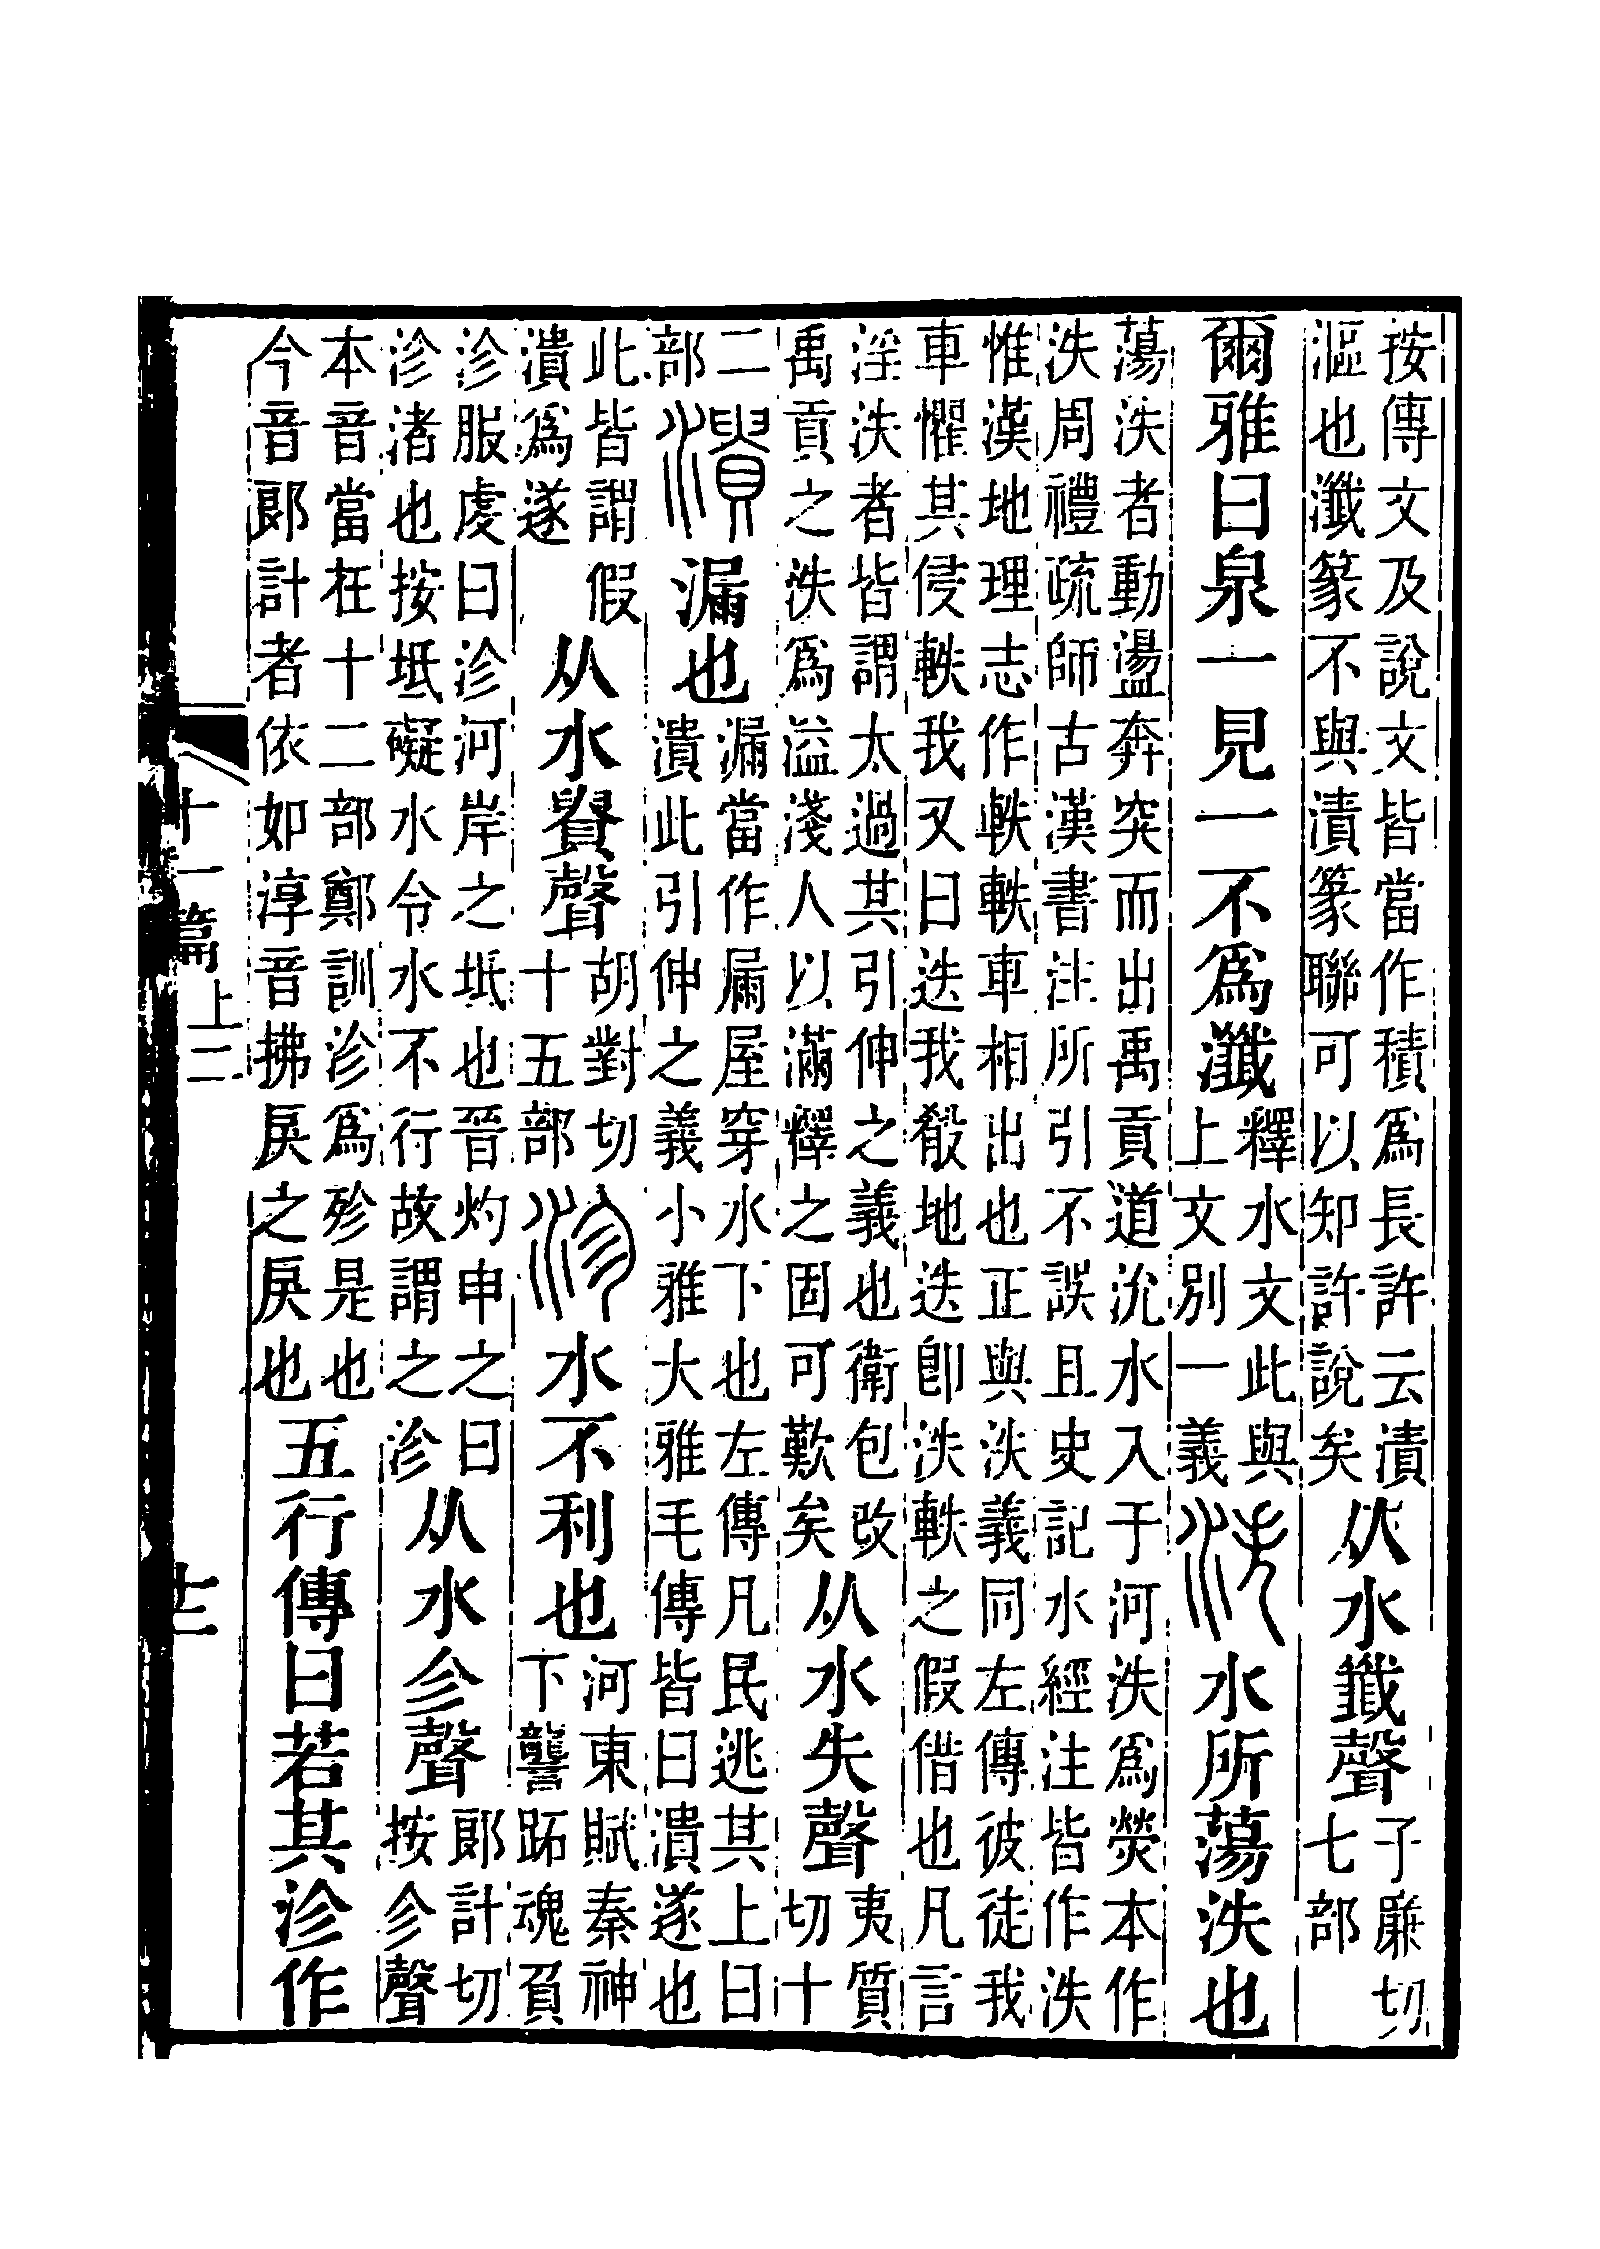 按傳文及說文皆當作積爲長許云漬
漚也瀸篆不與漬篆聯可以知許說矣
从水籤聲
子廉切
七部
爾雅曰泉一見一不爲瀸
釋水文此與
上文別一義
泆水所蕩泆也
蕩泆者動盪奔突而出禹貢道沇水入于河泆爲熒本作
泆周禮疏師古漢書注所引不誤且史記水經注皆作泆
惟漢地理志作軼軼車相出也正與泆義同左傳彼徒我
車懼其侵軼我又曰迭我殽地迭卽泆軼之假借也凡言
淫泆者皆謂太過其引伸之義也衞包改
禹貢之泆爲溢淺人以滿釋之固可歎矣
从水失聲
夷質
切十
二
部
潰漏也
漏當作屚屋穿水下也左傳凡民逃其上曰
潰此引伸之義小雅大雅毛傳皆曰潰遂也
此皆謂假
潰爲遂
从水貴聲
胡對切
十五部
沴水不利也
河東賦秦神
下讋跖魂負
沴服虔曰沴河岸之坻也晉灼申之曰
沴渚也按坻礙水令水不行故謂之沴
从水㐱聲
郎計切
按㐱聲
本音當在十二部鄭訓沴爲殄是也
今音郎計者依如淳音拂戾之戾也
五行傳曰若其沴作
十一篇上二